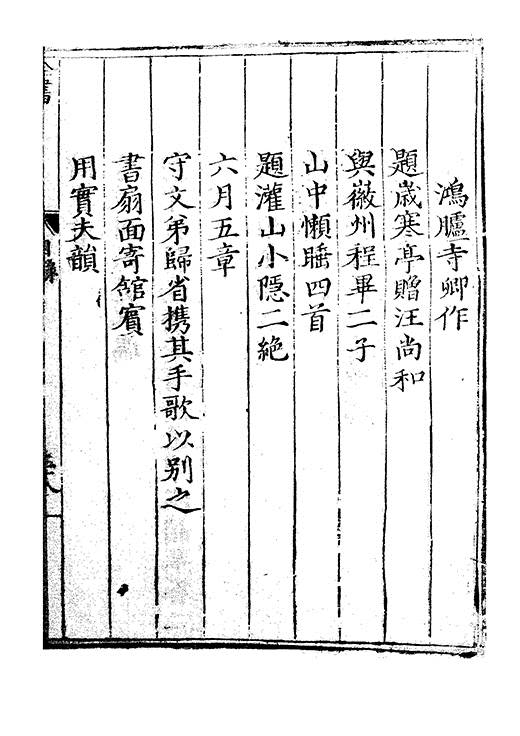 鴻臚寺卿作
題歲寒亭贈汪尚和
與徽州程畢二子
山中懶睡四首
題灌山小隱二絶
六月五章
守文弟歸省携其手歌以别之
書扇面寄館賓
用實夫韻
全書
目錄